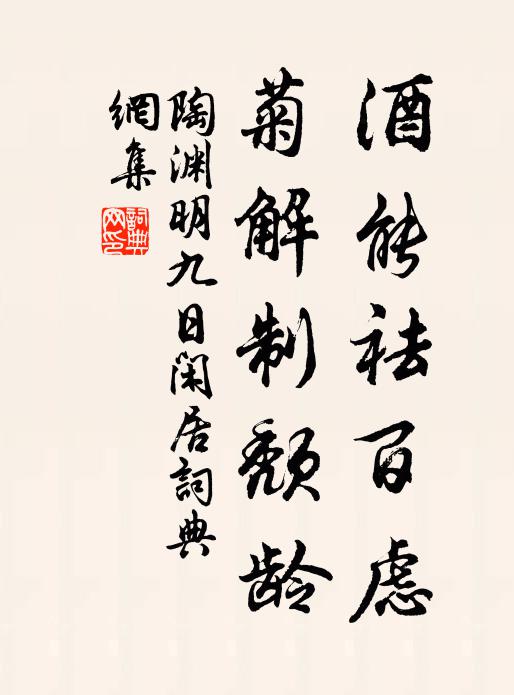 酒能祛百慮
菊解制頹齡
陶渊明九日閑居詞典
網集
詞典
网印